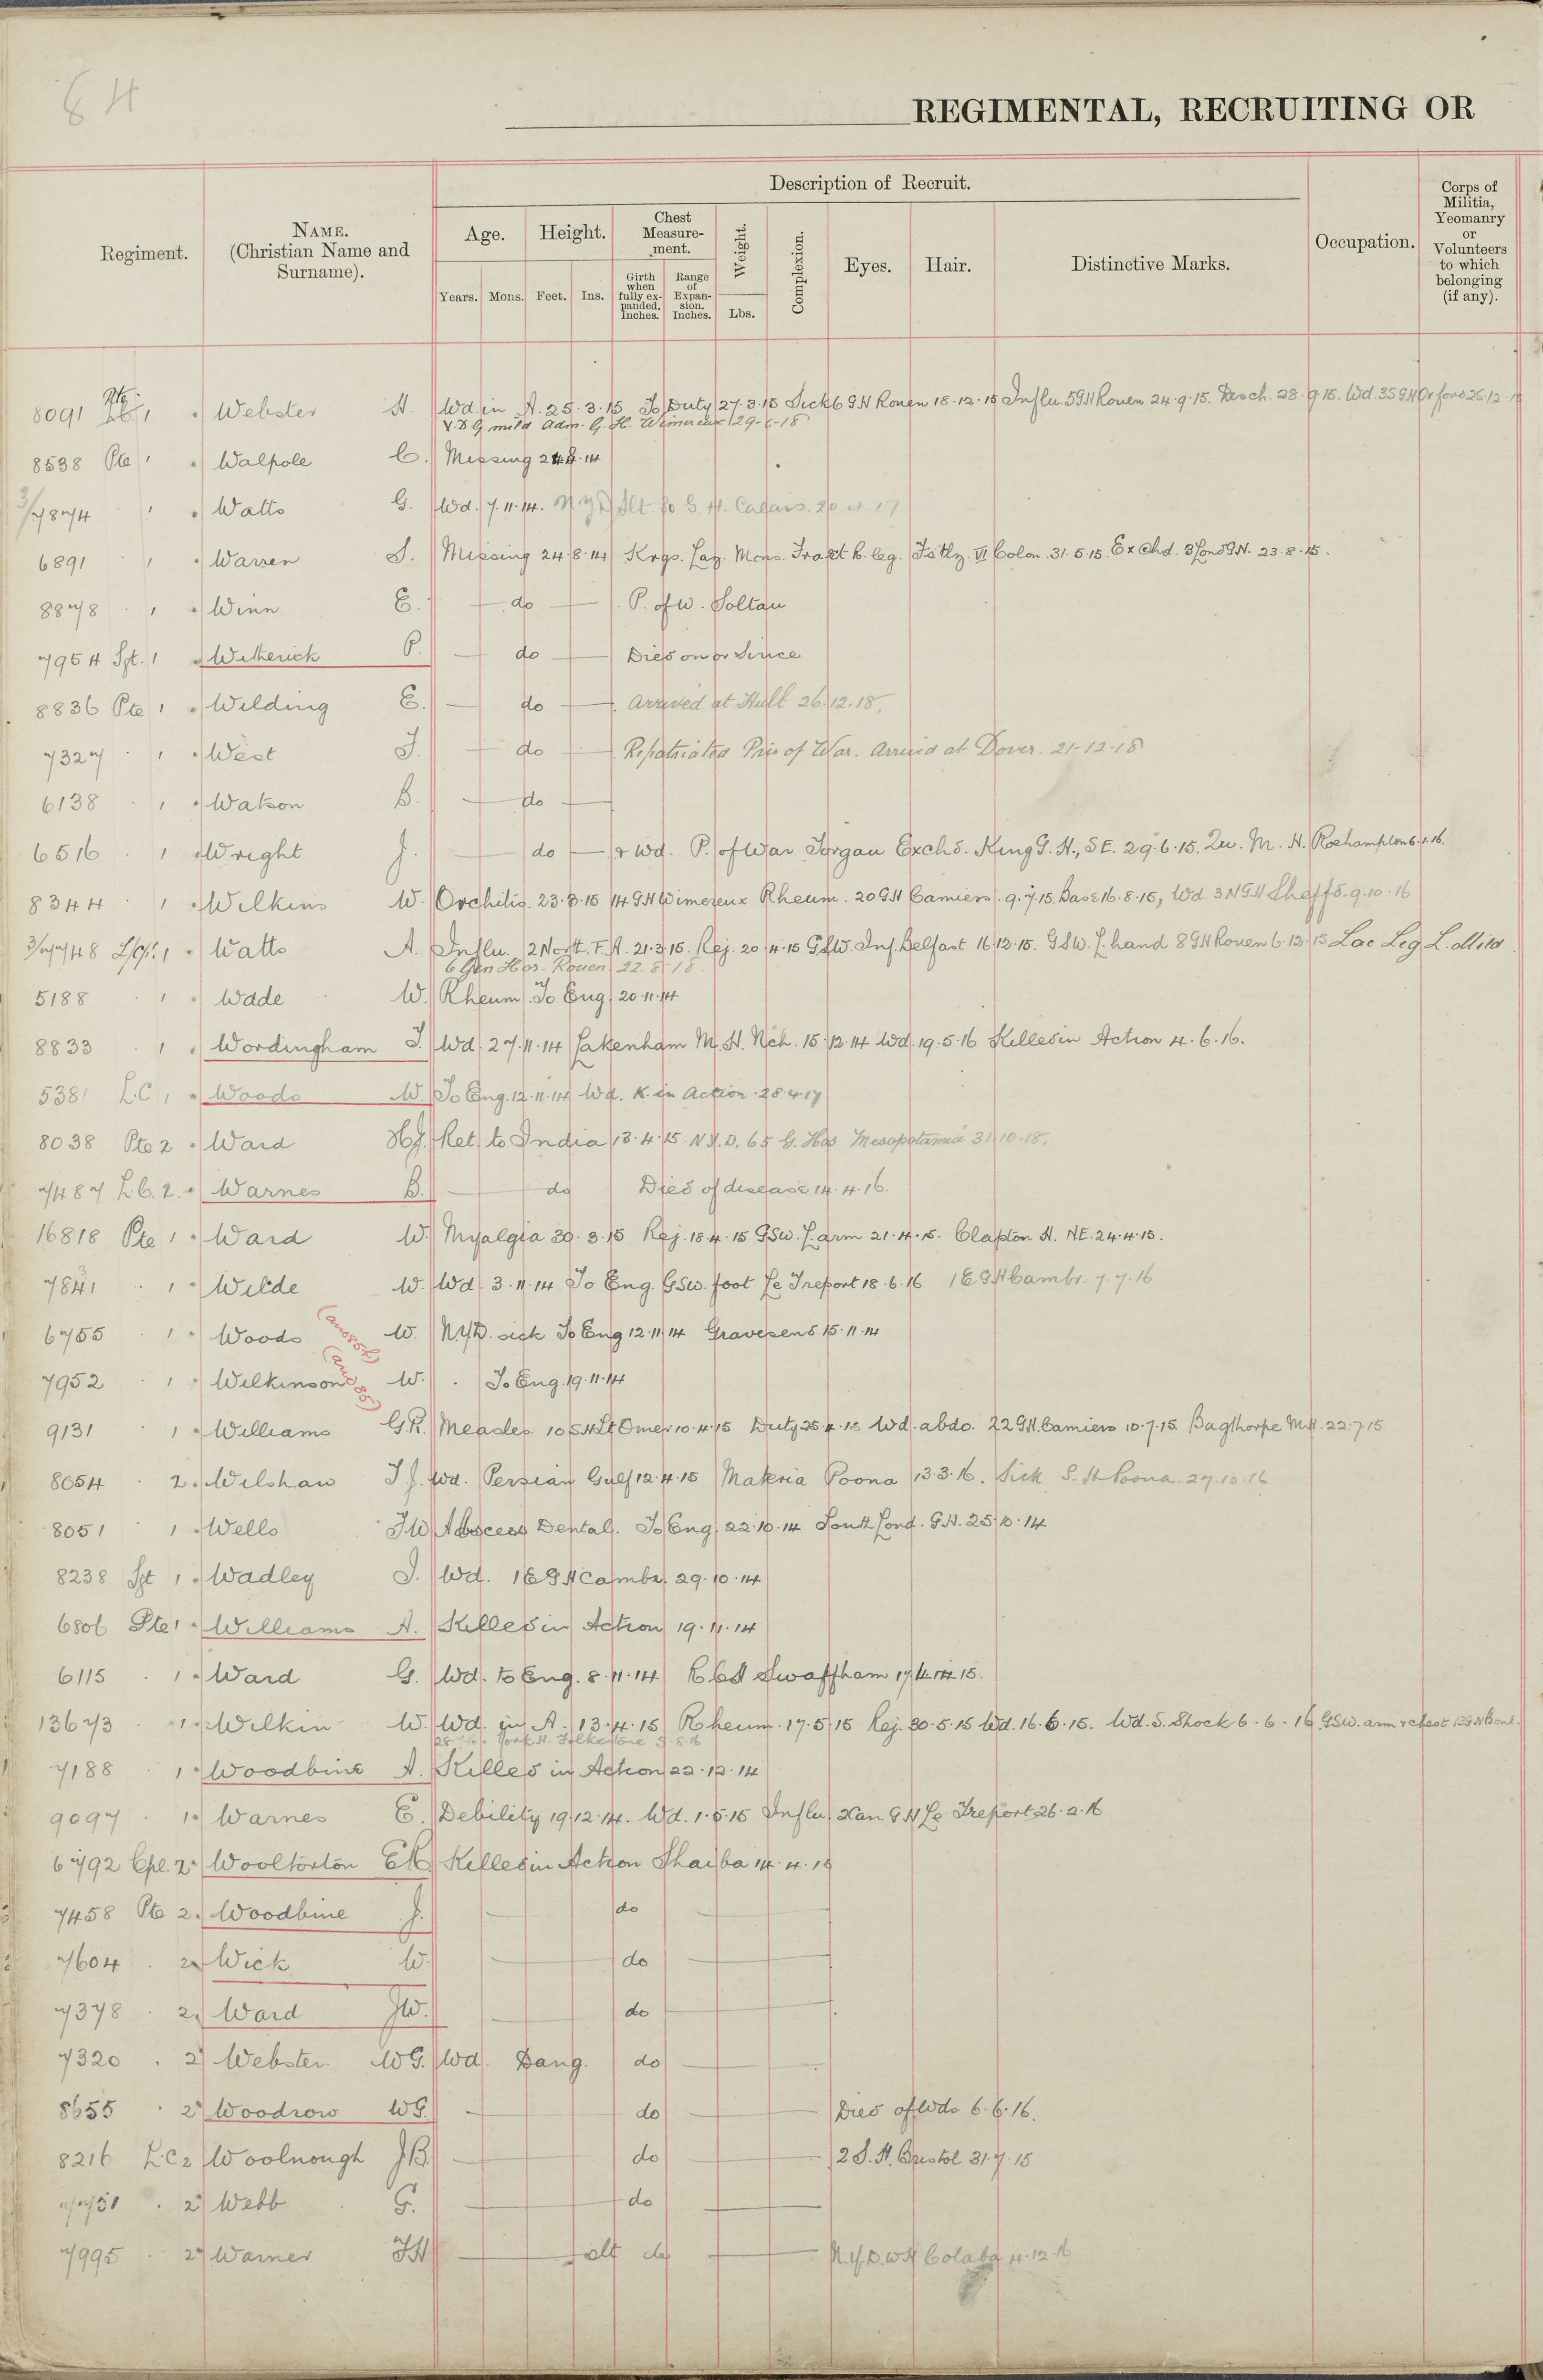 84
REGIMENTAL, RECRUITING OR
Regiment.
NAME.
(Christian Name and
Surname).
Description of Recruit.
Age.
Height.
Chest
Measure-
ment.
Weight.
Complexion.
Eyes.
Hair.
Distinctive Marks.
Occupation.
Corps of
Militia,
Yeomanry
or
Volunteers
to which
belonging
(if any).
Years.
Mons.
Feet.
Ins.
Girth
when
fully ex-
panded.
Inches.
Range
of
Expan-
sion.
Inches.
Lbs.
8091 Pte 1 Webster H. Wd. in A. 25.3.15 To Duty 27.3.15 Sick 6 GH Rouen 18.12.15 Influ. 5 GH Rouen 24.9.15. Disch. 28.9.15. Wd. 3SGH Oxford 26.12.15
V.D.G mild adm. G.H. Wimereux 29-6-18
8538 Pte 1 Walpole C. Missing 24.8.14
3/7874 1 Watts G. Wd. 7.11.14. N.Y.D. Slt. 30 G.H. Calais. 20.4.17
6891 1 Warren S. Missing 24.8.14 Krgs. Laz. Mons. Fract R. leg. Fstlz. VI Coln. 31.5.15. Exchd. 3 Lond GH. 23.8.15.
8878 1 Winn E. do P. of W. Soltau
7954 Sgt. 1 Witherick P. do Died on or Since
8836 Pte 1 Wilding E. do Arrived at Hull 26.12.18.
7327 1 West J. do Repatriated Pris of War. Arrived at Dover. 21-12-18
6138 1 Watson B. do
6516 1 Wright J. do & Wd. P. of War Torgau Exchd. King G. H., S E. 29.6.15. Qu. M. H. Roehampton 6.1.16.
8344 1 Wilkins W. Orchitis. 23.3.15 14 GH Wimereux Rheum. 20 GH Camiers. 9.7.15. Base 16.8.15, Wd. 3 NGH Sheffd. 9.10.16
3/7748 L/Cpl. 1 Watts A. Influ. 2 North. F.A. 21.3.15. Rej. 20.4.15 GSW. Inf. Belfast 16.12.15. GSW. L. hand 8 GH Rouen 6.12.15 Lac Leg L. Mild.
6 Gen Hos. Rouen 22.8.18
5188 1 Wade W. Rheum. To Eng. 20.11.14
8833 1 Wordingham J. Wd. 27.11.14 Lakenham M. H. Nch. 15.12.14 Wd. 19.5.16 Killed in Action 4.6.16.
5381 L.C 1 Woods W. To Eng. 12.11.14 Wd. K. in Action 28.4.17
8038 Pte 2 Ward H.J. Ret. to India 13.4.15 N.Y.D. 65 G. Hos Mesopotamia 31.10.18.
7487 L.C. 2. Warnes B. do Died of disease 14.4.16.
16818 Pte 1 Ward W. Myalgia 30.3.15 Rej. 18.4.15 GSW. L. arm 21.4.15. Clapton H. NE. 24.4.15.
7841 1 Wilde W. Wd. 3.11.14 To Eng. GSW. foot Le Treport 18.6.16 1 E GH Cambr. 7.7.16
6755 1 Woods W. N.Y.D. sick To Eng 12.11.14 Gravesend 15.11.14
7952 1 Wilkinson W. To Eng. 19.11.14
9131 1 Williams G.R. Measles 10 SH St Omer 10.4.15 Duty 25.4.15 Wd. abdo. 22 GH. Camiers 10.7.15. Bagthorpe M.H. 22.7.15
8054 2. Wilshaw T.J. Wd. Persian Gulf 12.4.15 Malaria Poona 13.3.16. Sick S. H Poona. 27.10.16
8051 1 Wells F.W. Abscess Dental. To Eng. 22.10.14 South Lond. G.H. 25.10.14
8238 Sgt 1 Wadley J. Wd. 1 E GH Cambr. 29.10.14
6806 Pte 1 Williams A. Killed in Action 19.11.14
6115 1 Ward G. Wd. to Eng. 8.11.14 R C H Swaffham
13673 1 Wilkin W. Wd. in A. 13.4.15 Rheum. 17.5.15 Rej. 30.5.15 Wd. 16.6.15. Wd. S. Shock 6.6.16 GSW. arm & chest
Folkestone 5.8.16
7188 1 Woodbine A. Killed in Action 22.12.14
9097 1 Warnes E. Debility 19.12.14. Wd. 1.5.15 Influ. 2 Can GH Le Treport 26.2.16
6792 Cpl. 2 Wooltorton E.R. Killed in Action Shaiba 14.4.15
7458 Pte 2. Woodbine J. do
7604 2 Wick W. do
7378 2 Ward J.W. do
7320 2 Webster W.G. Wd. Dang. do
8655 2 Woodrow W.G. do Died of Wds 6.6.16.
8216 L.C 2 Woolnough J.B. do 2 S. H. Bristol 31.7.15
7751 2 Webb G. do
7995 2 Warner F.H. slt do N.Y.D. W H Colaba 4.12.16